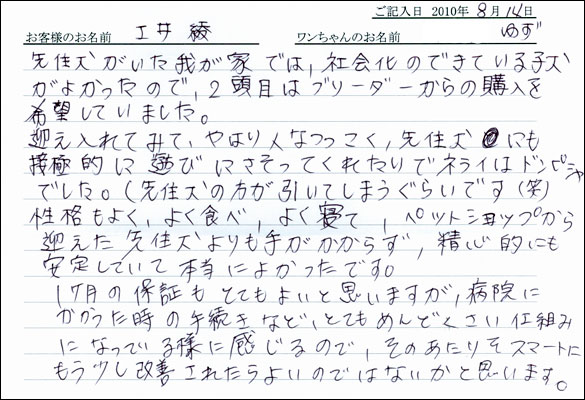 ご記入日 2010年 8月 14日
お客様のお名前 工井 綾 ワンちゃんのお名前 ゆず
先住犬がいた我が家では,社会化のできている子犬
がよかったので,2頭目はブリーダーからの購入を
希望していました。
迎え入れてみて,やはり人なつっこく,先住犬にも
接極的に遊びにさそってくれたりでネライはドンピシャ
でした。(先住犬の方が引いてしまうぐらいです(笑)
性格もよく,よく食べ,よく寝て,ペットショップから
迎えた先住犬よりも手がかからず,精心的にも
安定していて本当によかったです。
1ケ月の保証もとてもよいと思いますが,病院に
かかった時の手続きなど,とてもめんどくさい仕組み
になっている様に感じるので,そのあたりそスマートに
もう少し改善されたらよいのではないかと思います。